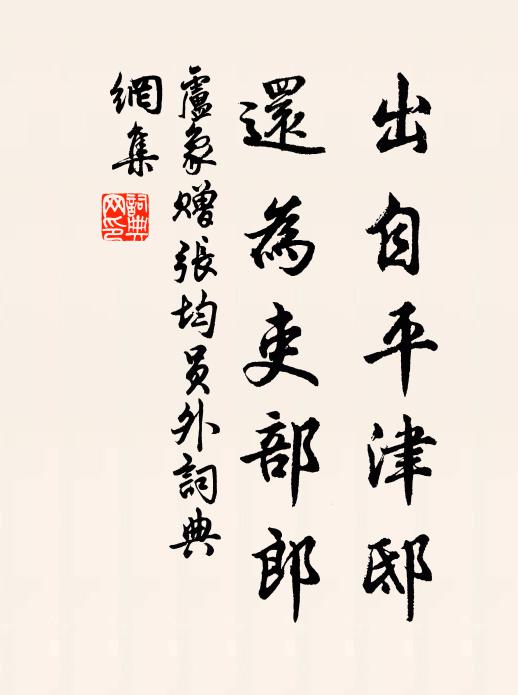 出自平津邸
還為吏部郎
盧象贈張均員外詞典
網集
詞典
网印